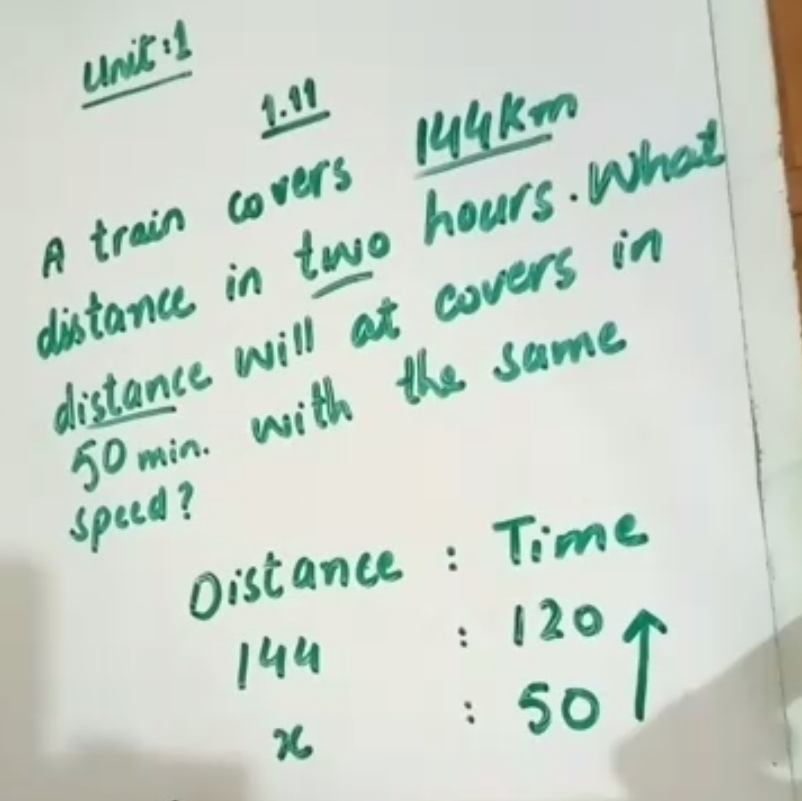 Unit:1
1.11
A train covers 144Km
distance in two hours. What
distance will at covers in
50 min. with the same
speed?
Distance : Time
144 : 120
x : 50